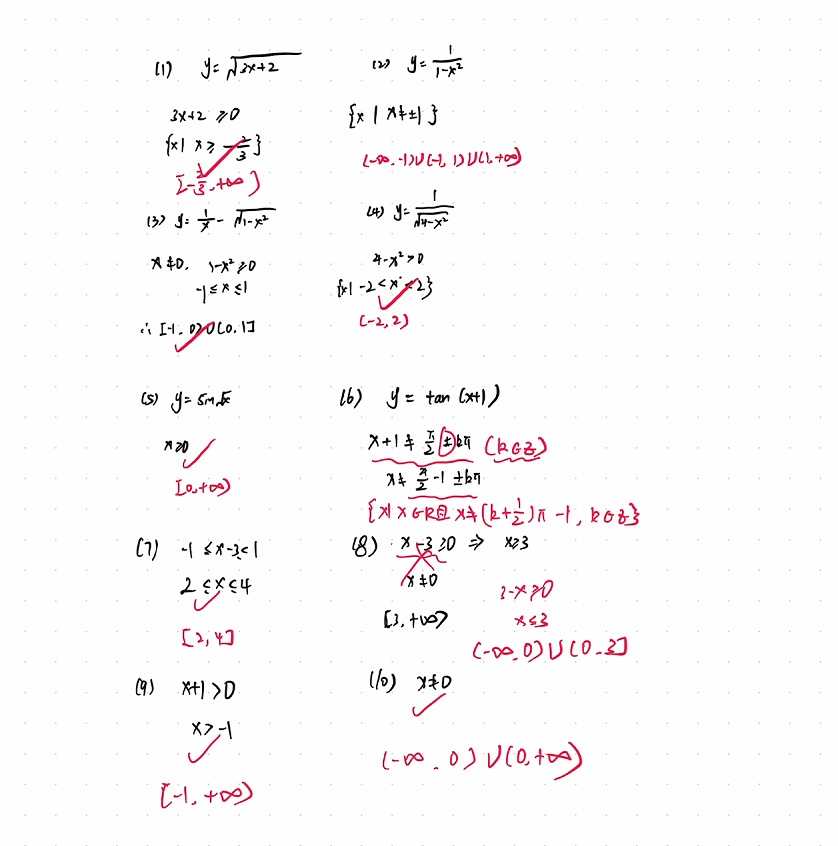 (1) y=√3x+2
(2) y=1/1-x²
3x+2 ≥0
{x| x≥ -2/3}
[-2/3,+∞)
{x | x≠±1}
(-∞,-1)∪(-1,1)∪(1,+∞)
(3) y=1/x-√1-x²
x≠0, 1-x²≥0
-1≤x≤1
∴ [-1,0)∪(0,1]
(4) y=1/√4-x²
4-x²>0
{x|-2<x<2}
(-2,2)
(5) y=sin√x
x≥0
[0,+∞)
(6) y=tan(x+1)
x+1≠π/2±kπ (k∈Z)
x≠π/2-1±kπ
{x|x∈R且x≠(k+1/2)π-1,k∈Z}
(7) -1≤x-3≤1
2≤x≤4
[2,4]
(8) x-3≥0 ⇒ x≥3
x≠0
[3,+∞)
3-x≥0
x≤3
(-∞,0)∪(0,3]
(9) x+1>0
x>-1
[-1,+∞)
(10) x≠0
(-∞,0)∪(0,+∞)